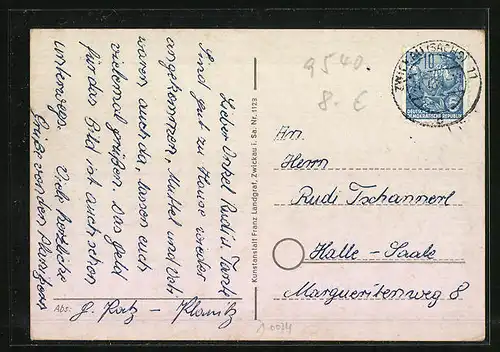 Lieber Onkel Rudi u. Tante
Sind gut zu Hause wieder
angekommen, Muttel und Vati
waren auch da, lassen euch
vielemal grüßen. Das Geld
für das Bild ist auch schon
unterwegs. Viele herzliche
Grüße von den Planitzern
Abs: G. Katz - Planitz
Kunstanstalt Franz Landgraf, Zwickau i. Sa. Nr. 1123
9540.
8.€
ZWICKAU (SACHS) 11
10
DEUTSCHE
DEMOKRATISCHE REPUBLIK
An
Herrn
Rudi Tschannerl
Halle - Saale
Margueritenweg 8